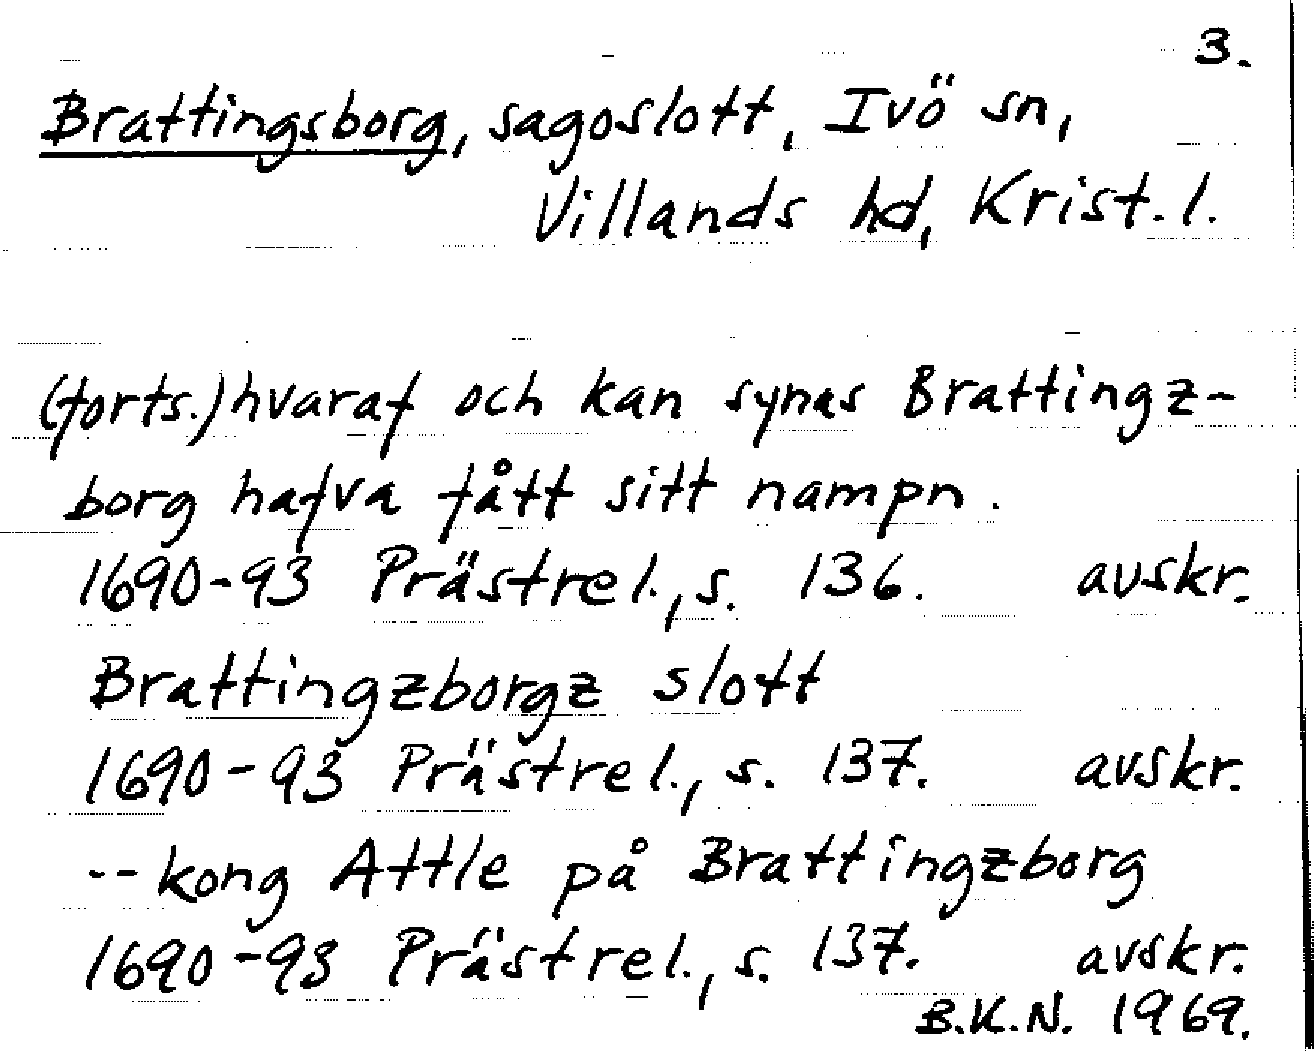 3.
Brattingsborg, sagoslott, Ivö sn,
Villands hd, Krist. l.
(forts.) hvaraf och kan synas Brattingz-
borg hafva fått sitt nampn.
1690-93 Prästrel., s. 136. avskr.
Brattingzborgz slott
1690-93 Prästrel., s. 137. avskr.
--kong Attle på Brattingzborg
1690-93 Prästrel., s. 137. avskr.
B.K.N. 1969.